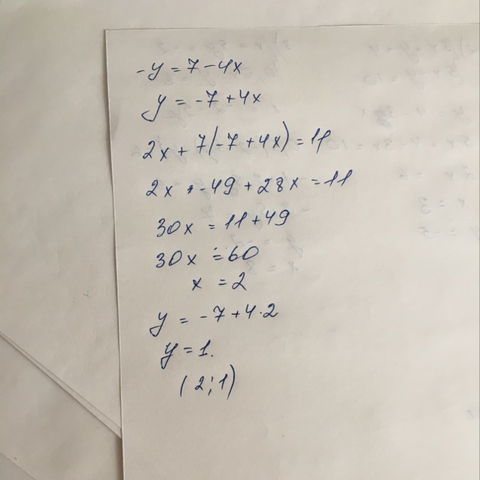 -y = 7 - 4x
y = -7 + 4x
2x + 7(-7 + 4x) = 11
2x + -49 + 28x = 11
30x = 11 + 49
30x = 60
x = 2
y = -7 + 4·2
y = 1.
(2; 1)